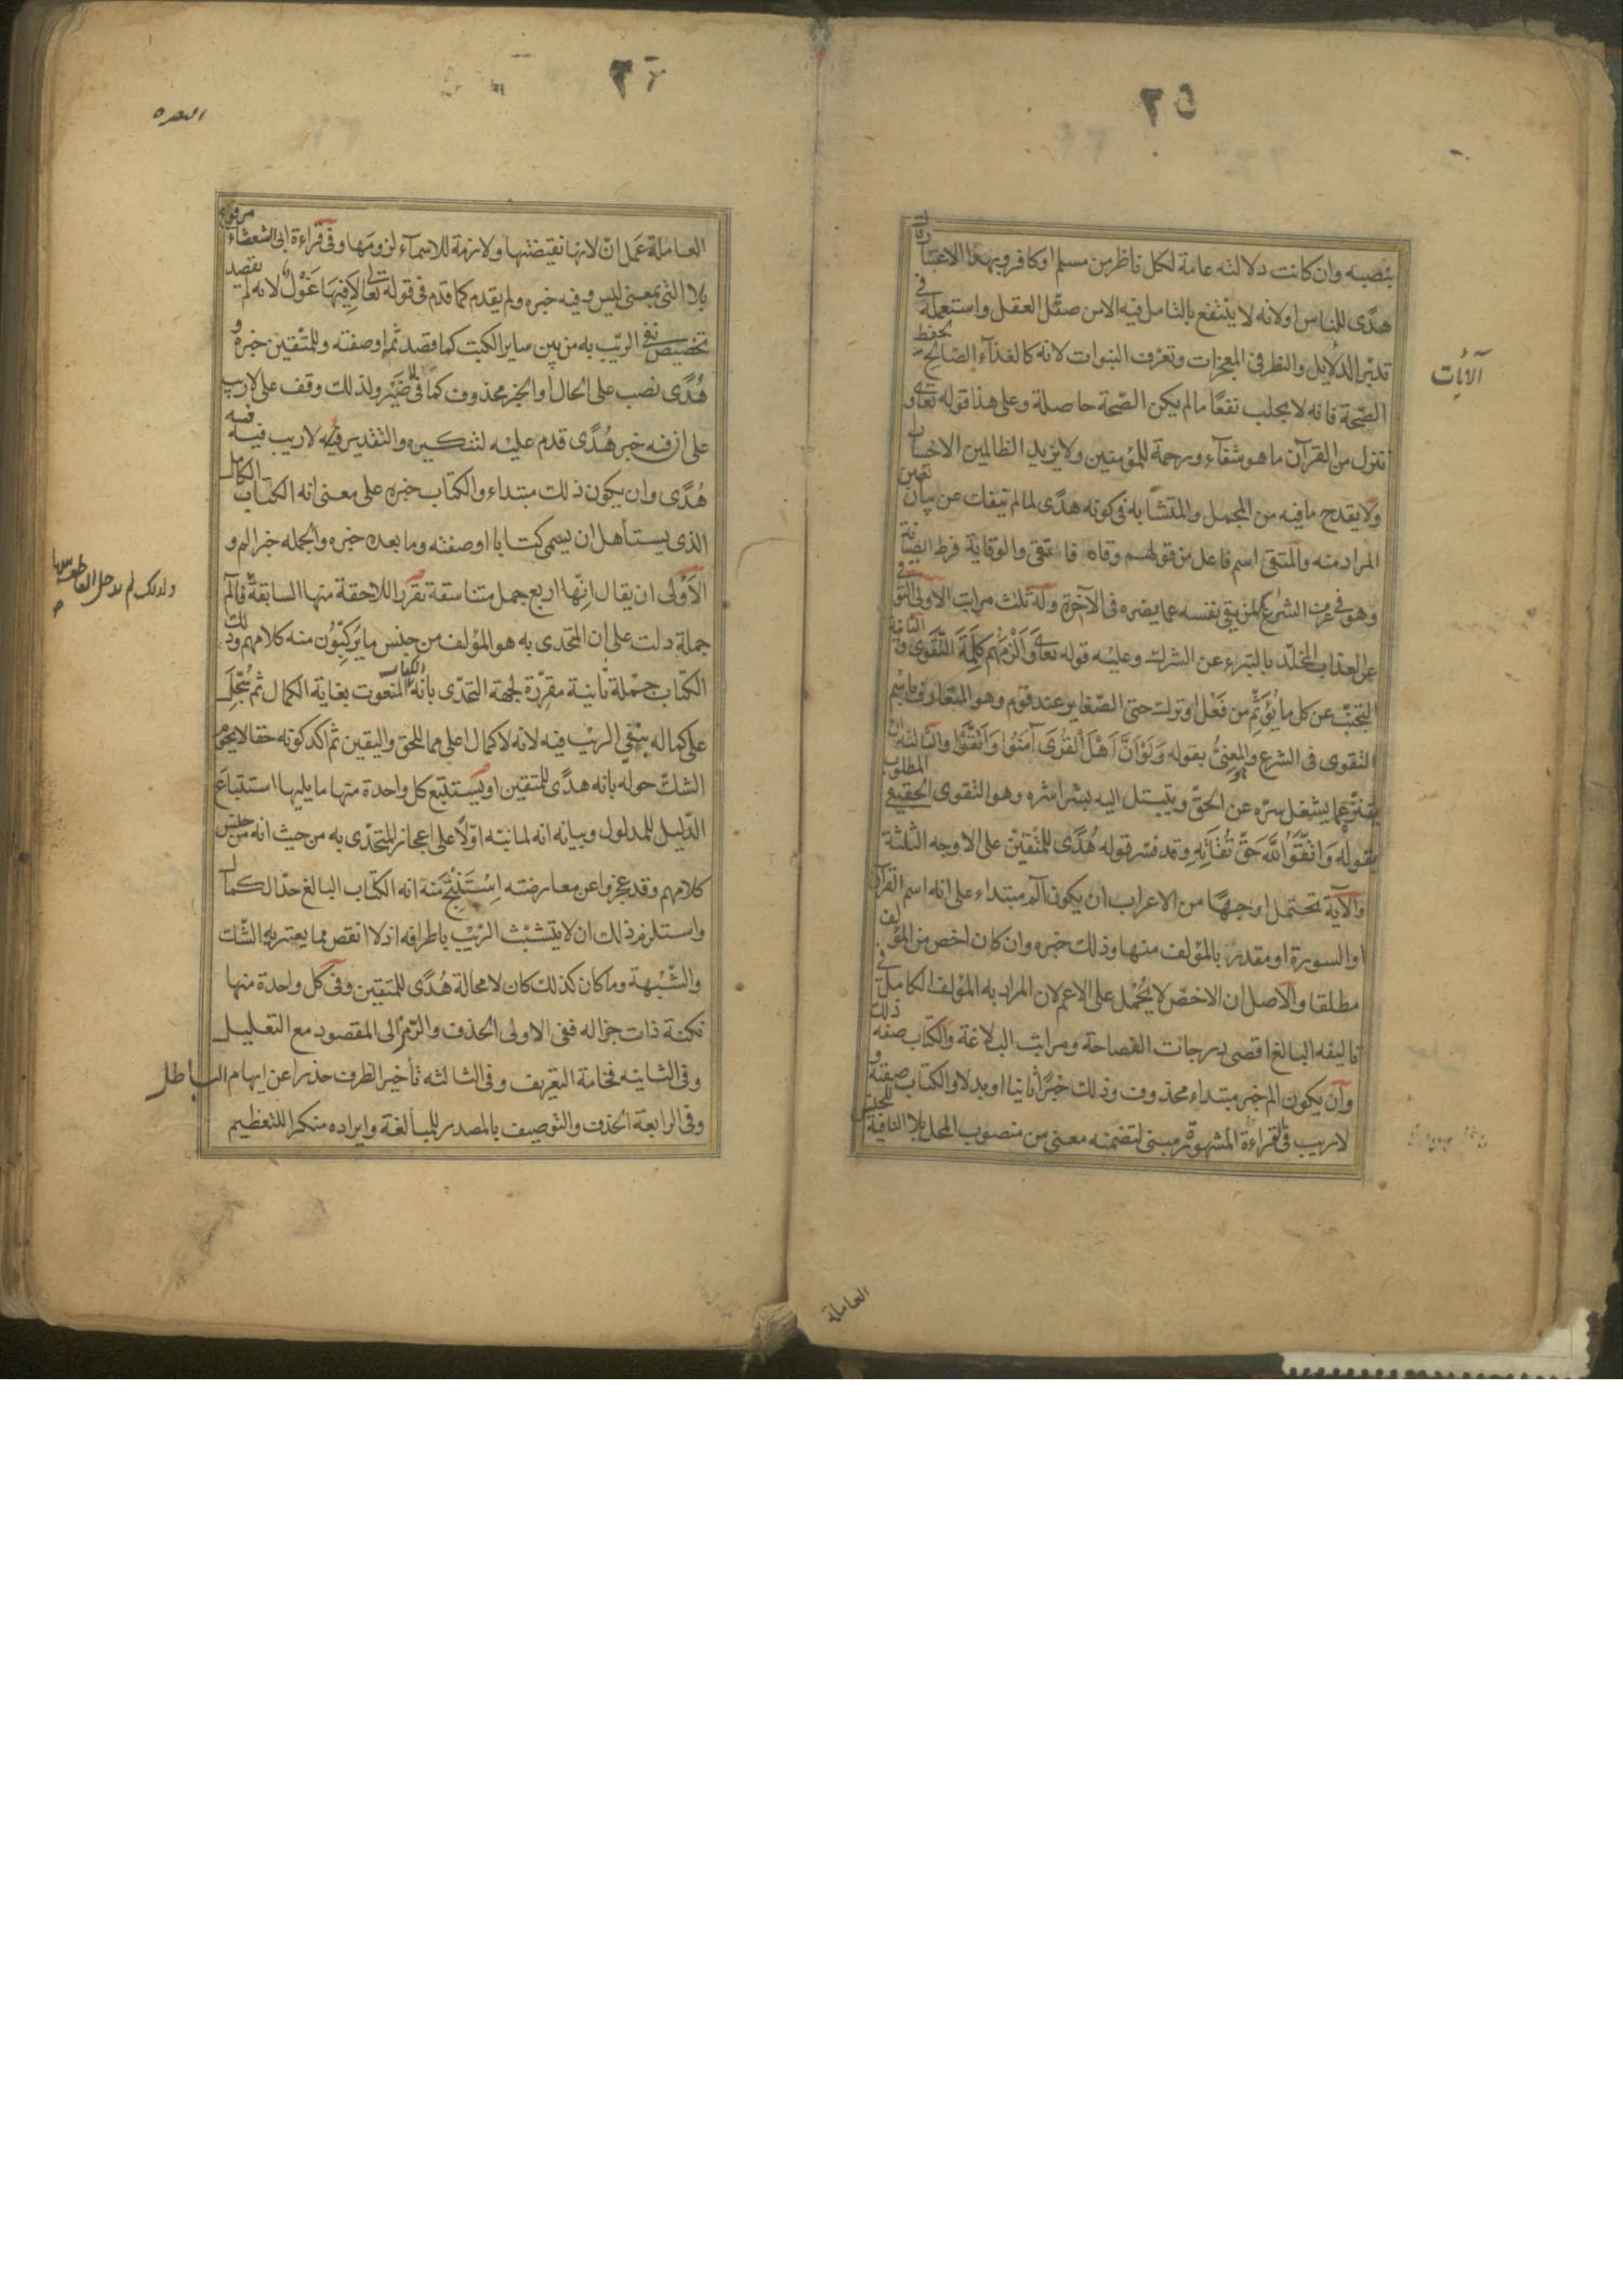 ٢٥
بنصبه وان كانت دلالته عامة لكل ناظر من مسلم او كافر وبهذا الاعتبار قال
هدًى للناس اولانه لا ينتفع بالتامل فيه الا من صقّل العقل واستعمله في
تدبّر الدلايل والنظر فى المعجزات وتعرّف النبوات لانه كالغذآء الصّالح لحفظ
الصّحة فانه لا يجلب نفعًا مالم يكن الصّحة حاصلة وعلى هذا قوله تعالى و
ننزل من القرآن ما هو شفآء ورحمة للمؤمنين ولا يزيد الظالمين الا خسارا
ولا يقدح ما فيه من المجمل والمتشابه فى كونه هدًى لما لم ينفك عن بيان تعين
المراد منه والمتقى اسم فاعل من قولهم وقاه فاتقى والوقاية فرط الصيانة
وهو فى عرف الشرع لمن يقى نفسه عما يضره فى الآخرة وله ثلث مراتب الاولى التوقى
عن العذاب المخلّد بالتبرء عن الشرك وعليه قوله تعالى وَأَلْزَمَهُمْ كَلِمَةَ التَّقْوَى والثانية
التجنّب عن كل ما يُؤثِّم من فعْل او ترك حتى الصّغاير عند قوم وهو المتعارف باسْم
التقوى فى الشرع والمعنىُّ بقوله وَلَوْ اَنَّ اَهْلَ الْقُرَى آمَنُوا وَاتَّقَوْا والثالثة ان
يتنزّه عما يشغل سرّه عن الحقّ ويتبتل اليه بشراشره وهو التقوى الحقيقى المطلوب
بقوله وَاتَّقُوا اللَّهَ حَقَّ تُقَاتِهِ وقد فسّر قوله هُدًى للمتّقين على الاوجه الثلثة
والآية تحتمل اوجهًا من الاعراب ان يكون الم مبتداء على انه اسم القرآن
او السورة او مقدر بالمؤلف منها وذلك خبره وان كان اخص من المؤلف
مطلقا والاصل ان الاخصّ لا يُحْمل على الاعم لان المراد به المؤلف الكامل في
تاليفه البالغ اقصى درجات الفصاحة ومراتب البلاغة والكتاب صفة ذلك
وان يكون الم خبر مبتداء محذوف وذلك خبرًا ثانيا او بدلا والكتاب صفته و
لاريب فى القراءة المشهورة مبنى لتضمنه معنى من منصوب المحل بلا النافية للجنس
الآيات
العاملة
٢٦
البقره
العاملة عَمل انّ لانها نقيضتها ولازمة للاسمآء لزومَها وفى قراءة ابى الشعثاء مرفوع
بلا التى بمعنى ليس وفيه خبره ولم يقدم كما قدم فى قوله تعالى لَافِيهَا غَوْلٌ لانه لم يقصد
تخصيص نفى الريْب به من بين ساير الكتب كما قصد ثَم او صفته وللمتّقين خبره و
هُدًى نصب على الحال او الخبر محذوف كما فى لا ضَيْر ولذلك وقف على لاريب
على ان فيه خبر هُدًى قدم عليه لتنكيره والتقدير فيه لا ريب فيه فيه
هُدًى وان يكون ذلك مبتداء والكتاب خبره على معنى انه الكتاب الكامل
الذى يستأهل ان يسمى كتابا او صفته وما بعده خبره والجمله خبر الم و
الاَوْلى ان يقال انّها اربع جمل متناسقة تقرّر اللاحقة منها السابقة فالم
جملة دلت على ان المتحدى به هو المؤلف من جنس ما يركِّبون منه كلامهم وذلك
الكتاب جُمْلة ثانية مقرِّرة لجهة التحدّى بانه الكتاب المنعوت بغاية الكمال ثم سُجِّل
على كماله بنفى الريْب فيه لانه لا كمال اعلى مما للحق واليقين ثم اكد كونه حقا لا يحوم
الشك حوله بانه هدًى للمتقين او يَستَتبع كل واحدة منها ما يليها استتباعَ
الدّليل للمدلول وبيانه انه لما نبّه اوّلا على اعجاز المتحدّى به من حيث انه من جنس
كلامهم وقد عجزوا عن معارضته اِسْتَنتج منه انه الكتاب البالغ حدّ الكمال
واستلزم ذلك ان لا يتشبث الريْب باطرافه اذ لا انقص مما يعتريه الشّك
والشّبْهة وما كان كذلك كان لا محالة هُدًى للمتقين وفى كل واحدة منها
نكتة ذات جزاله ففى الاولى الحذف والرّمز الى المقصود مع التعليل
وفى الثانيه فخامة التعريف وفى الثالثه تأخير الظرف حذرا عن ايهام الباطل
وفى الرابعة الحذف والتوصيف بالمصدر للمبالغة وايراده منكرا للتعظيم
ولذلك لم يدخل العاطف بينها